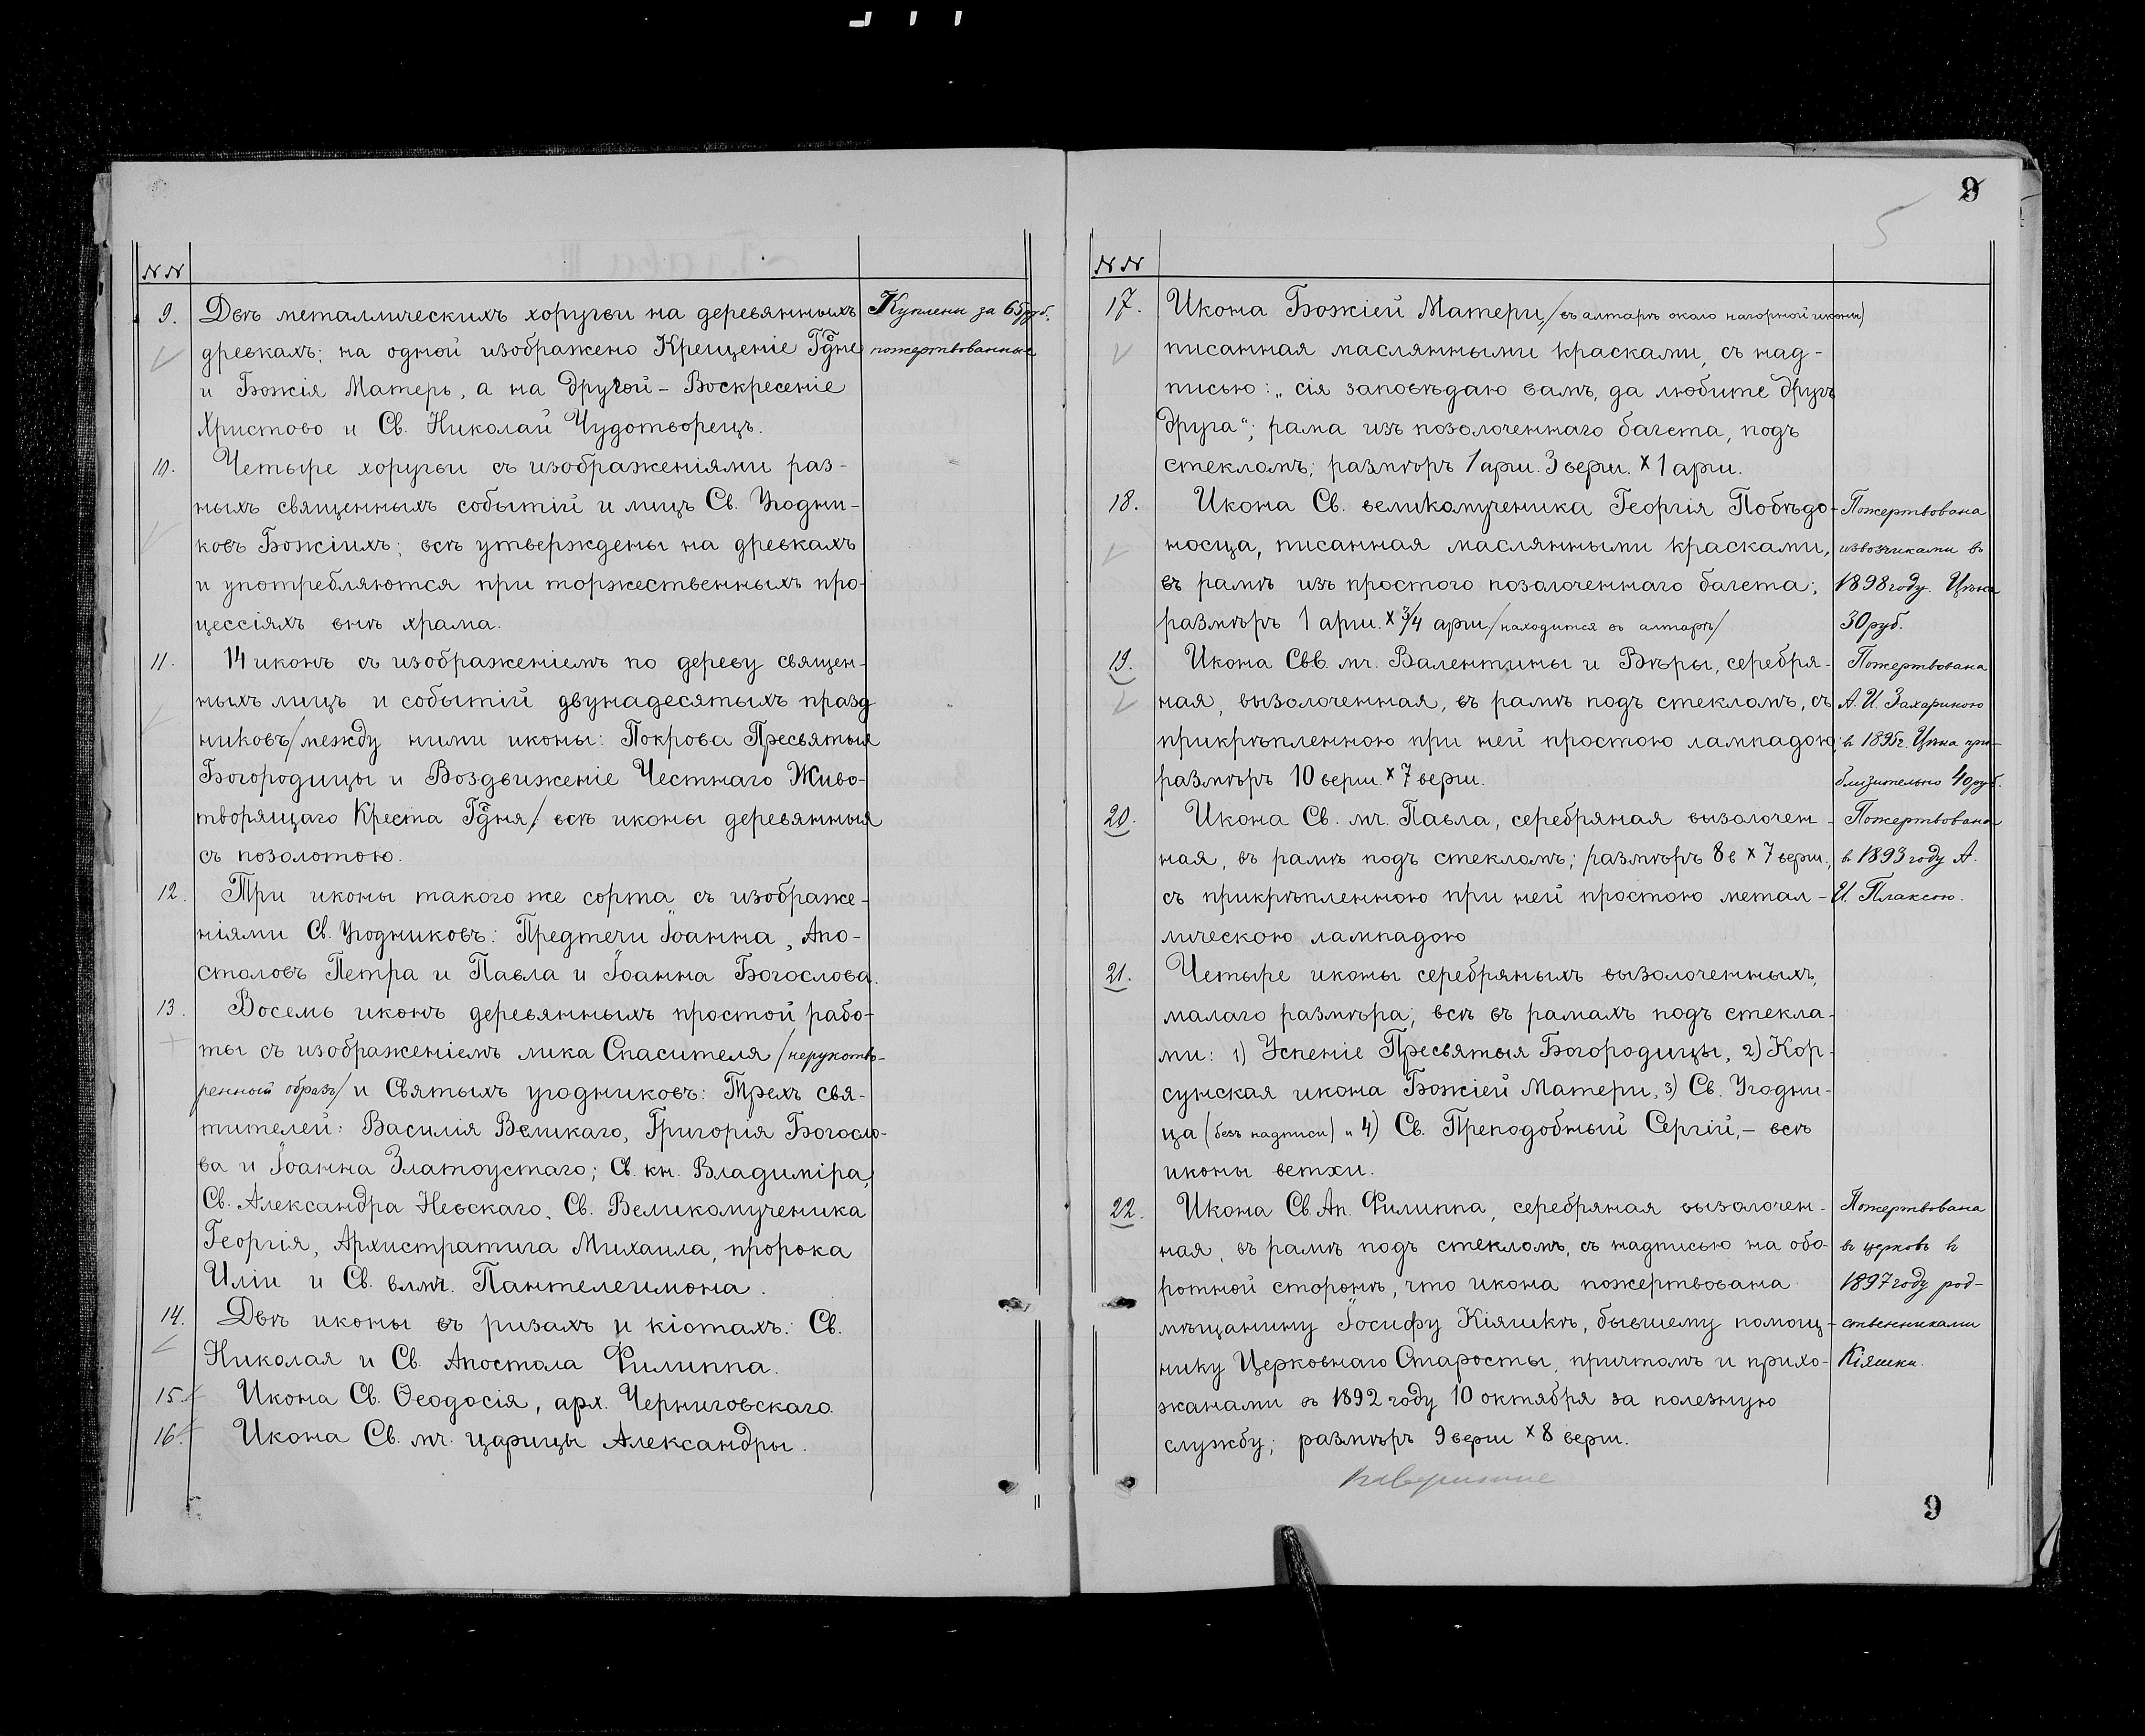 № №
9. Двѣ металлическихъ хоругви на деревянныхъ Куплены за 65 руб.
древкахъ; на одной изображено Крещеніе Гдне пожертвованные
и Божія Матерь, а на другой - Воскресеніе
Христово и Св. Николай Чудотворецъ.
10. Четыре хоругви съ изображеніями раз-
ныхъ священныхъ событій и лицъ Св. Угодни-
ковъ Божіихъ; всѣ утверждены на древкахъ
и употребляются при торжественныхъ про-
цессіяхъ внѣ храма.
11. 14 иконъ съ изображеніемъ по дереву священ-
ныхъ лицъ и событій двунадесятыхъ празд
никовъ/между ними иконы: Покрова Пресвятыя
Богородицы и Воздвиженіе Честнаго Живо-
творящаго Креста Гдня/; всѣ иконы деревянныя
съ позолотою.
12. Три иконы такого же сорта съ изображе-
ніями Св. Угодниковъ: Предтечи Іоанна, Апо-
столовъ Петра и Павла и Іоанна Богослова.
13. Восемь иконъ деревянныхъ простой рабо-
ты съ изображеніемъ лика Спасителя /нерукотв-
ренный образъ/ и Святыхъ угодниковъ: Трехъ свя-
тителей: Василія Великаго, Григорія Богосло-
ва и Іоанна Златоустаго; Св. кн. Владиміра,
Св. Александра Невскаго, Св. Великомученика
Георгія, Архистратига Михаила, пророка
Иліи и Св. влмч. Пантелеимона.
14. Двѣ иконы въ ризахъ и кіотахъ: Св.
Николая и Св. Апостола Филиппа.
15. Икона Св. Ѳеодосія, арх. Черниговскаго.
16. Икона Св. мч. царицы Александры.
9
5
№ №
17. Икона Божіей Матери,/въ алтарѣ около нагорной иконы)
писанная маслянными красками, съ над-
писью: „сія заповѣдаю вамъ, да любите другъ
друга"; рама изъ позолоченнаго багета, подъ
стекломъ; размѣръ 1 арш. 3 верш. х 1 арш.
18. Икона Св. великомученика Георгія Побѣдо- Пожертвована
носца, писанная маслянными красками, извозчиками въ
въ рамѣ изъ простого позолоченнаго багета; 1898 году. Цѣна
размѣръ 1 арш. х 3/4 арш/находится въ алтарѣ/ 30 руб.
19. Икона Свв. мч. Валентины и Вѣры, серебря- Пожертвована
ная, вызолоченная, въ рамѣ подъ стекломъ, съ А. И. Захариною
прикрѣпленною при ней простою лампадою; в 1895 г. Цѣна при-
размѣръ 10 верш. х 7 верш. близительно 40 руб.
20. Икона Св. мч. Павла, серебряная вызолочен- Пожертвована
ная, въ рамѣ подъ стекломъ; размѣръ 8 в х 7 верш., в 1893 году А.
съ прикрѣпленною при ней простою метал- И. Плаксою.
лическою лампадою
21. Четыре иконы серебряныхъ вызолоченныхъ,
малаго размѣра; всѣ въ рамахъ подъ стекла-
ми: 1) Успеніе Пресвятыя Богородицы, 2) Кор-
сунская икона Божіей Матери, 3) Св. Угодни-
ца (безъ надписи) и 4) Св. Преподобный Сергій, - всѣ
иконы ветхи.
22. Икона Св. Ап. Филиппа, серебряная вызолочен- Пожертвована
ная, въ рамѣ подъ стекломъ, съ надписью на обо- въ церковь в
ротной сторонѣ, что икона пожертвована 1897 году род-
мѣщанину Іосифу Кіяшкѣ, бывшему помощ- ственниками
нику Церковнаго Старосты, причтомъ и прихо- Кіяшки.
жанами въ 1892 году 10 октября за полезную
службу; размѣръ 9 верш х 8 верш.
9